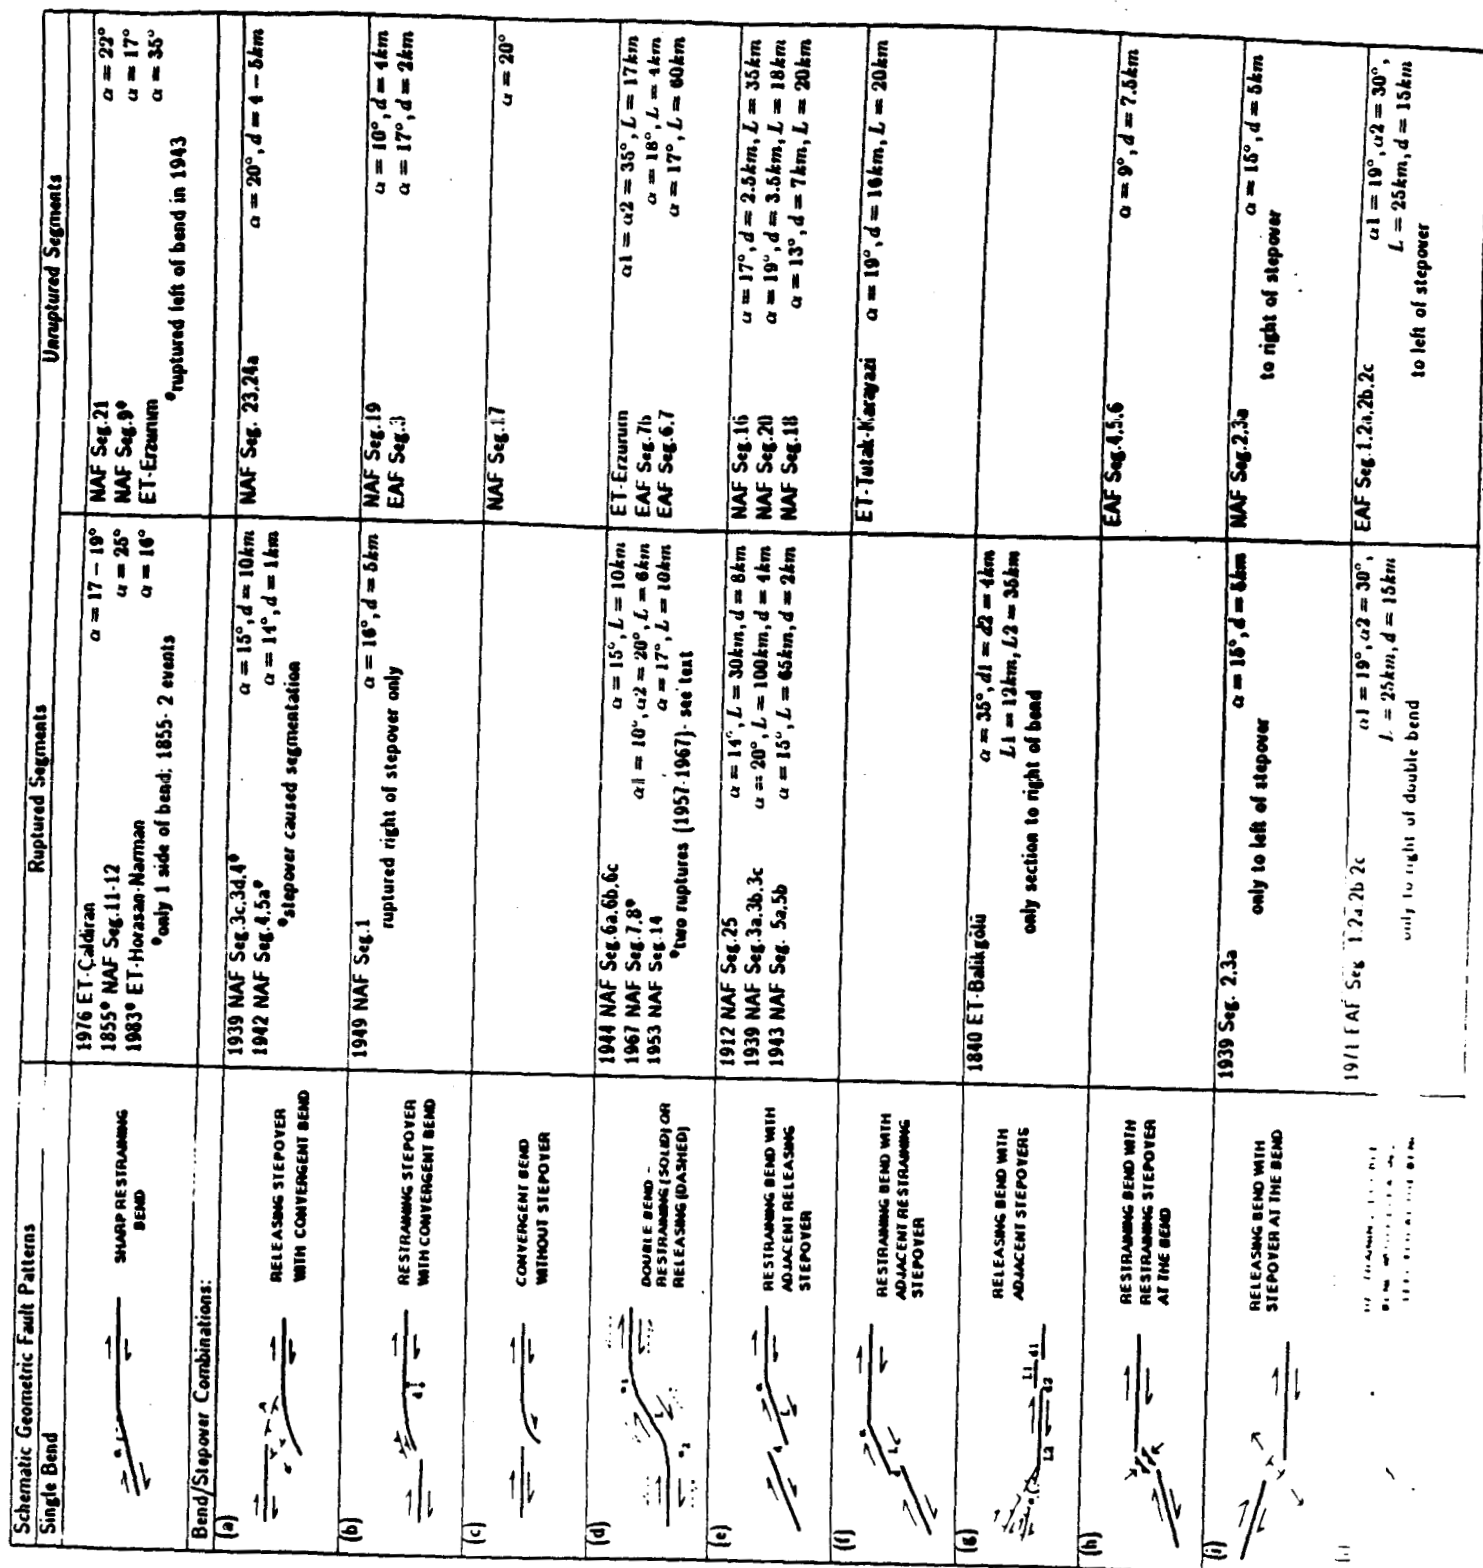 Schematic Geometric Fault Patterns
Ruptured Segments
Unruptured Segments
Single Bend
SHARP RESTRAINING
BEND
α
1976 ET-Çaldiran α = 17 − 19°
1855* NAF Seg.11-12 α = 25°
1983* ET-Horasan-Narman α = 16°
*only 1 side of bend; 1855- 2 events
NAF Seg.21 α = 22°
NAF Seg.9* α = 17°
ET-Erzurum α = 35°
*ruptured left of bend in 1943
Bend/Stepover Combinations:
(a)
RELEASING STEPOVER
WITH CONVERGENT BEND
α
1939 NAF Seg.3c,3d,4* α = 15°, d = 10km
1942 NAF Seg.4,5a* α = 14°, d = 1km
*stepover caused segmentation
NAF Seg. 23,24a α = 20°, d = 4 − 5km
(b)
RESTRAINING STEPOVER
WITH CONVERGENT BEND
d
1949 NAF Seg.1 α = 16°, d = 5km
ruptured right of stepover only
NAF Seg.19 α = 10°, d = 4km
EAF Seg.3 α = 17°, d = 2km
(c)
CONVERGENT BEND
WITHOUT STEPOVER
NAF Seg.17 α = 20°
(d)
DOUBLE BEND -
RESTRAINING (SOLID) OR
RELEASING (DASHED)
α1
L
α2
1944 NAF Seg.6a,6b,6c α = 15°, L = 10km
1967 NAF Seg.7,8* α1 = 10°, α2 = 20°, L = 6km
1953 NAF Seg.14 α = 17°, L = 10km
*two ruptures (1957-1967)- see text
ET-Erzurum α1 = α2 = 35°, L = 17km
EAF Seg.7b α = 18°, L = 4km
EAF Seg.6,7 α = 17°, L = 60km
(e)
RESTRAINING BEND WITH
ADJACENT RELEASING
STEPOVER
α
L
d
1912 NAF Seg.25 α = 14°, L = 30km, d = 8km
1939 NAF Seg.3a,3b,3c α = 20°, L = 100km, d = 4km
1943 NAF Seg. 5a,5b α = 15°, L = 65km, d = 2km
NAF Seg.16 α = 17°, d = 2.5km, L = 35km
NAF Seg.20 α = 19°, d = 3.5km, L = 18km
NAF Seg.18 α = 13°, d = 7km, L = 20km
(f)
RESTRAINING BEND WITH
ADJACENT RESTRAINING
STEPOVER
α
L
d
ET-Tutak-Karayazi α = 19°, d = 16km, L = 20km
(g)
RELEASING BEND WITH
ADJACENT STEPOVERS
L1
d1
L2
d2
1840 ET-Balikgölü α = 35°, d1 = d2 = 4km
L1 = 12km, L2 = 35km
only section to right of bend
(h)
RESTRAINING BEND WITH
RESTRAINING STEPOVER
AT THE BEND
EAF Seg.4,5,6 α = 9°, d = 7.5km
(i)
RELEASING BEND WITH
STEPOVER AT THE BEND
1939 Seg. 2,3a α = 15°, d = 5km
only to left of stepover
NAF Seg.2,3a α = 15°, d = 5km
to right of stepover
1971 EAF Seg 1,2a,2b,2c α1 = 19°, α2 = 30°,
L = 25km, d = 15km
only to right of double bend
EAF Seg.1,2a,2b,2c α1 = 19°, α2 = 30°,
L = 25km, d = 15km
to left of stepover